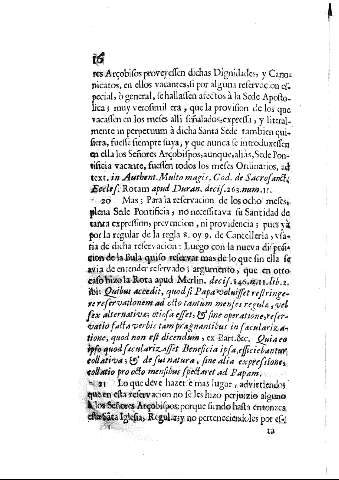 16
res Arçobispos proveyessen dichas Dignidades, y Cano-
nicatos, en ellos vacantes, si por alguna reservacion es-
pecial, ò general, se hallassen afectos à la Sede Aposto-
lica; muy verosimil era, que la provision de los que
vacassen en los meses alli señalados, expressa, y literal-
mente in perpetuum à dicha Santa Sede tambien qui-
siera, fuesse siempre suya, y que nunca se introduxessen
en ella los Señores Arçobispos, aunque, aliàs, Sede Pon-
tificia vacante, fuessen todos los meses Ordinarios, ad
text. in Authent. Multo magis, Cod. de Sacrosanct.
Eccles. Rotam apud Duran. decis. 263. num. 11.
20 Mas: Para la reservacion de los ocho meses,
plena Sede Pontificia, no necessitava su Santidad de
tanta expression, prevencion, ni providencia; pues yà
por la regular de la regla 8. oy 9. de Cancelleria, vsa-
ria de dicha reservacion: Luego con la nueva disposi-
cion de la Bula quiso reservar mas de lo que sin ella se
avia de entender reservado; argumento, que en otro
caso hizo la Rota apud Merlin. decis. 246. n. 11. lib. 2.
ibi: Quibus accedit, quod si Papa voluisset restringe-
re reservationem ad octo tantum menses regula, vel
sex alternativæ, otiosa esset, & sine operatione, reser-
vatio facta verbis tam pragnantibus in seculariza-
tione, quod non est dicendum, ex Bart. &c. Quia eo
ipso quod secularizasset Beneficia ipsa, efficiebantur
collativa; & de sui natura, sine alia expressione,
collatio pro octo mensibus spectaret ad Papam.
21 Lo que deve hazerse mas lugar, advirtiendo,
que en esta reservacion no se les hizo perjuizio alguno
à los Señores Arçobispos: porque siendo hasta entonces
esta Santa Iglesia, Regular, y no perteneciendoles por es-
ta